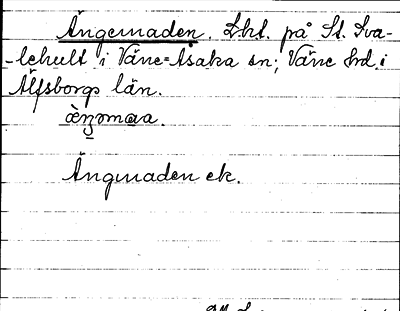 Ängemaden. Lht. på St. Sva-
lehult i Väne-Åsaka sn; Väne hrd. i
Älfsborgs län.

Ängmaden ek.